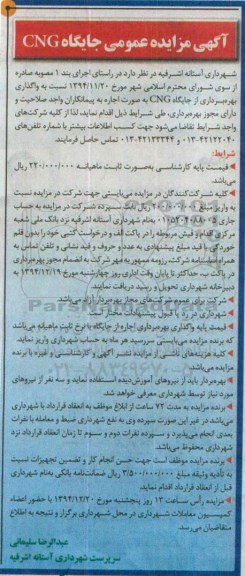 آگهی مزایده عمومی جایگاه CNG
شهرداری آستانه اشرفیه در نظر دارد در راستای اجرای بند ۱ مصوبه صادره
از سوی شورای محترم اسلامی شهر مورخ ۱۳۹۴/۱۱/۲۰ نسبت به واگذاری
بهره‌برداری از جایگاه CNG به صورت اجاره به پیمانکاران واجد صلاحیت و
دارای مجوز بهره‌برداری، طی شرایط ذیل اقدام نماید، لذا از کلیه شرکت‌های
واجد شرایط تقاضا می‌شود جهت کسب اطلاعات بیشتر با شماره تلفن‌های
۰۱۳-۴۲۱۲۲۰۴۰ و ۰۱۳-۴۲۱۳۳۳۴۴ تماس حاصل فرمایند.
شرایط:
قیمت پایه کارشناسی به‌صورت ثابت ماهیانه ۲۲۰/۰۰۰/۰۰۰ ریال
می‌باشد.
کلیه شرکت‌کنندگان در مزایده می‌بایستی جهت شرکت در مزایده نسبت
به واریز مبلغ ۲۰۰/۰۰۰/۰۰۰ ریال بابت سپرده شرکت در مزایده به حساب
جاری به‌نام شهرداری آستانه اشرفیه نزد بانک ملی شعبه
مرکزی اقدام و فیش مربوطه را در پاکت الف و درخواست کتبی خود را بدون قلم
خوردگی با قید مبلغ پیشنهادی به عدد و حروف و قید نشانی و تلفن تماس به
همراه اساسنامه شرکت، رزومه ممهور به مهر شرکت به انضمام مجوز بهره‌برداری
در پاکت ب، حداکثر تا پایان وقت اداری روز چهارشنبه مورخ ۱۳۹۴/۱۲/۱۹ به
دبیرخانه شهرداری تحویل و رسید دریافت نمایند.
شرکت برای عموم شرکت‌های مجاز بهره‌بردار آزاد می‌باشد.
شهرداری در رد یا قبول پیشنهادات مختار است.
قیمت پایه واگذاری بهره‌برداری اجاره از جایگاه با نرخ ثابت ماهیانه می‌باشد
که برنده مزایده می‌بایستی سررسید هر ماه به حساب شهرداری واریز نماید.
کلیه هزینه‌های ناشی از مزایده نشر آگهی و کارشناسی و غیره با برنده
مزایده می‌باشد.
بهره‌بردار باید از نیروهای آموزش‌دیده استفاده نماید و سه نفر از نیروهای
مورد نیاز توسط شهرداری معرفی خواهد شد.
برنده مزایده به مدت ۷۲ ساعت از ابلاغ موظف به انعقاد قرارداد با شهرداری
می‌باشد در غیر این صورت سپرده وی به نفع شهرداری ضبط و معامله با نفرات
بعدی انجام می‌پذیرد و سپرده نفرات دوم و سوم تا زمان انعقاد قرارداد نزد
شهرداری محفوظ می‌باشد.
برنده مزایده موظف است جهت حسن انجام کار و تضمین تجهیزات نسبت
به تأدیه وثیقه مبلغ ۳/۵۰۰/۰۰۰/۰۰۰ ریال ضمانت‌نامه بانکی به‌نام شهرداری
قبل از انعقاد قرارداد اقدام نماید.
مزایده رأس ساعت ۱۳ روز پنجشنبه مورخ ۱۳۹۴/۱۲/۲۰ با حضور اعضاء
کمیسیون معاملات شهرداری در محل شهرداری برگزار و نتیجه به اطلاع
متقاضیان می‌رسد.
عبدالرضا سلیمانی
سرپرست شهرداری آستانه اشرفیه